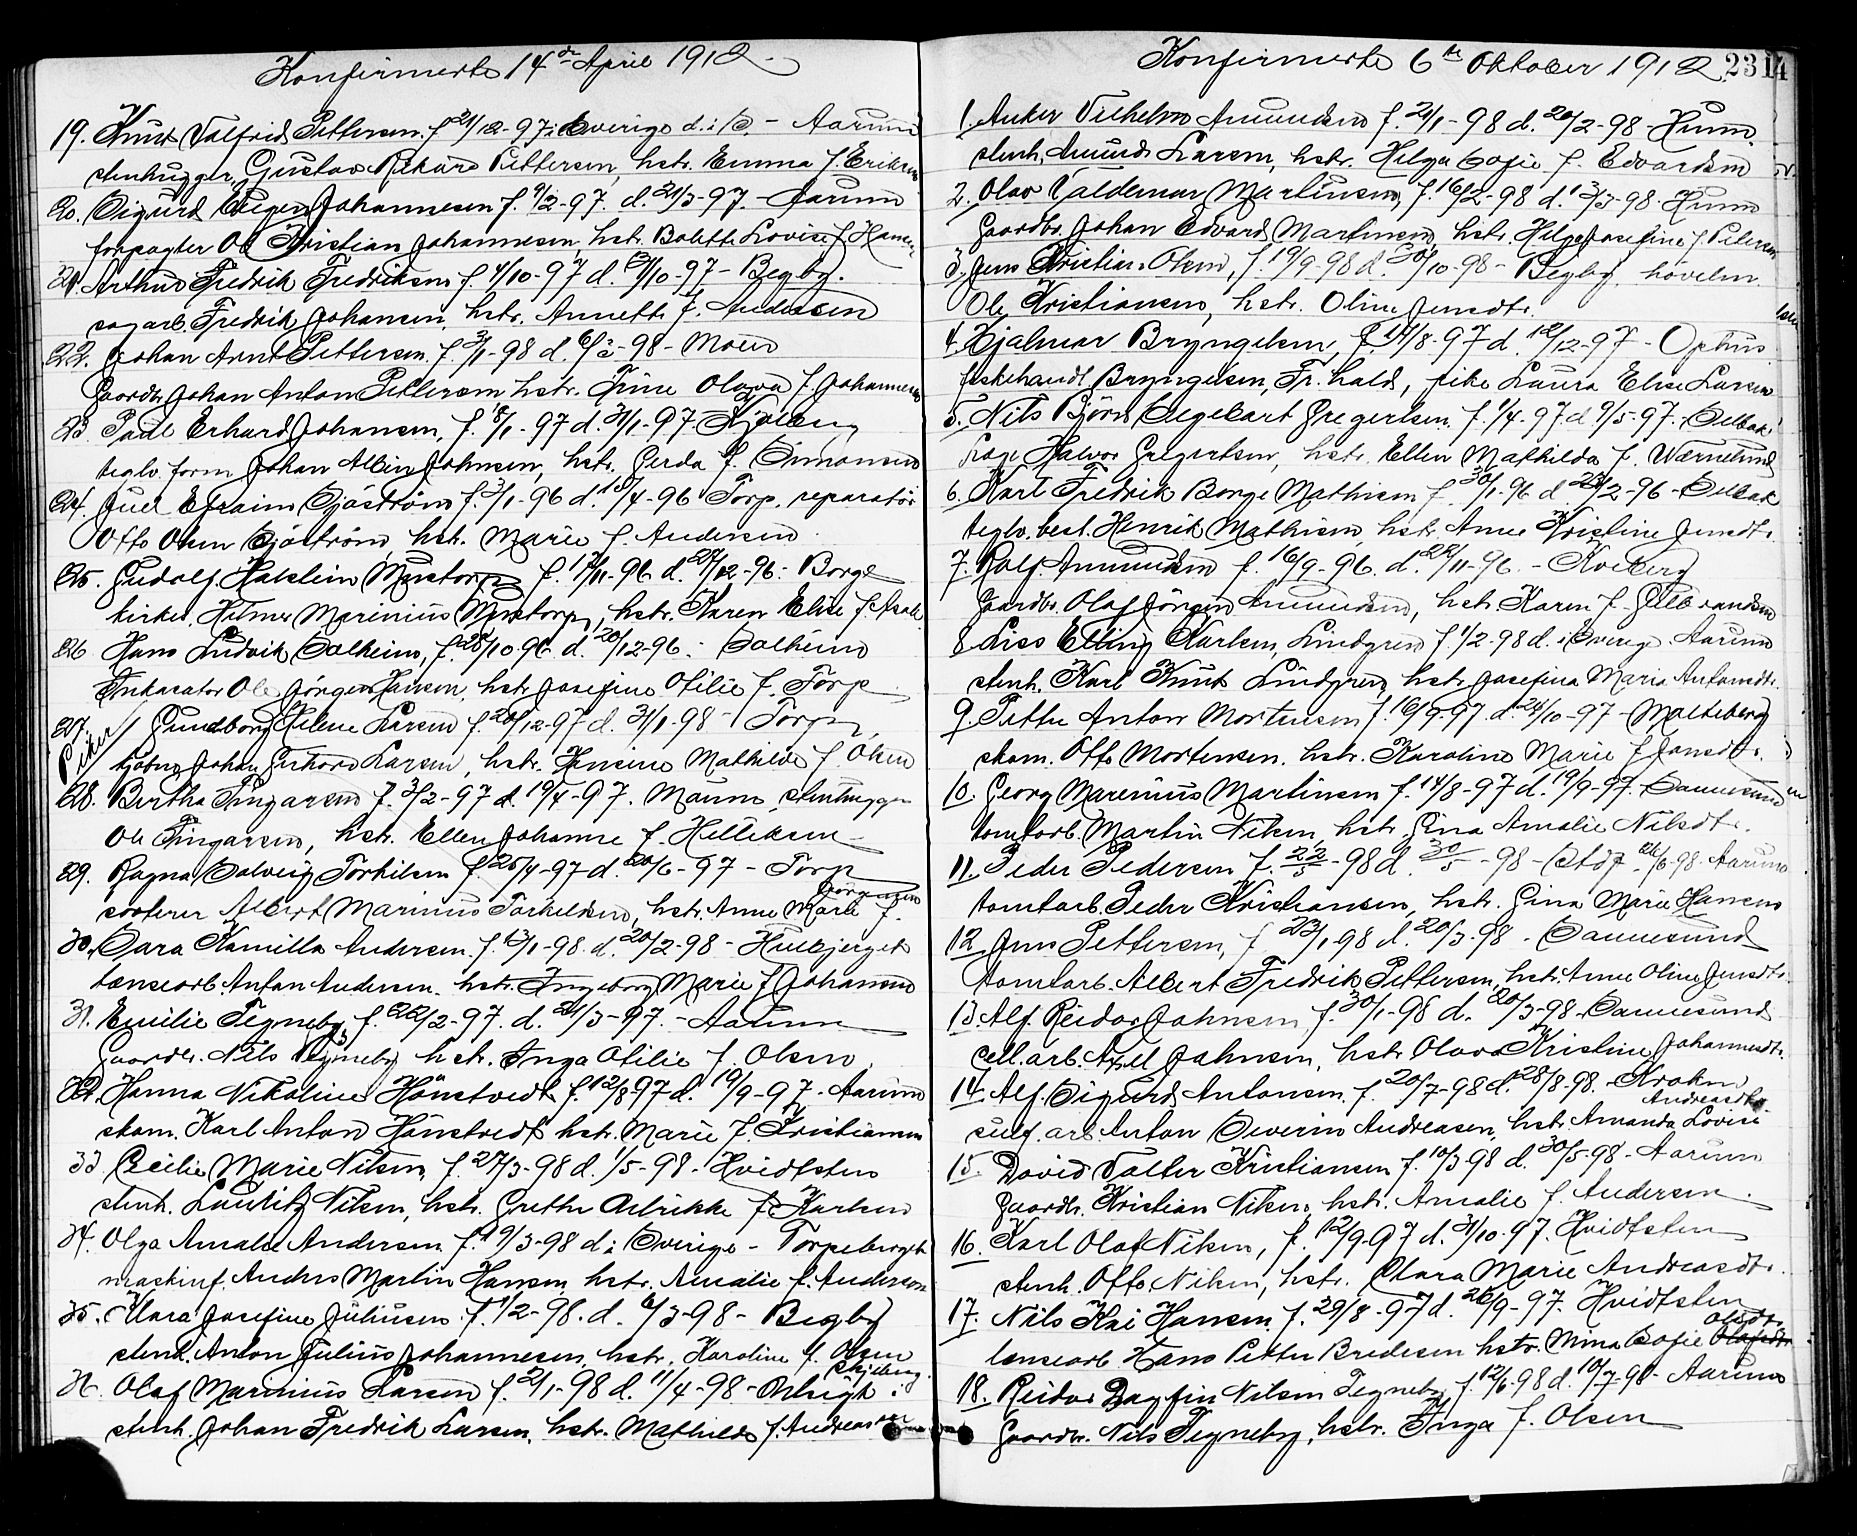 Konfirmerte 14de April 1912
19. Knut Valfrid Pettersen f. 21/12-97 i Sverige d. i S. - Aarum
stenhugger, Gustav Rikard Pettersen, hstr. Emma f. Eriksen
20. Sigurd Eugen Johannesen f. 9/2-97. d. 21/3-97. - Aarum
forpagter Ole Kristian Johannesen hstr. Bolette Lovise f. Hansen
21. Arthur Fredrik Fredriksen f. 4/10-97 d. /10-97 - Begby.
sagarb. Fredrik Johansen, hstr. Annette f. Andersen
22. Johan Arnt Pettersen f. 3/1-98 d. 6/2-98 - Moum
Gaardbr. Johan Anton Pettersen hstr. Trine Olava f. Johannesen
23. Paul Erhard Johansen, f. 8/1-97 d. 31/1-97 Kjølberg
teglv. form. Johan Albin Johnsen, hstr. Gerda f. Simonsen
24. Juel Efraim Sjöström f. 3/1-96 d. 10/4-96 Torp, reparatör
Otto Olsen Sjöström, hst. Marie f. Andersen
25. Gudolf Halstein Myrstorp f. 17/11-96 d. 27/12-96. Borge
kirket. Hilmer Marinius Myrstorp, hstr. Karen Elise f. Asak
26 Hans Ludvik Solheim, f. 28/10 96 d. 20/12-96. Solheim
Inkasator Ole Jörgen Hansen, hstr. Josefine Otilie f. Torp
27. Gundborg Helene Larsen f. 20/12-97 d. 31/1-98 - Torp
Piker
kjöbm. Johan Gerhard Larsen, hstr. Hensine Mathilde f. Olsen
28. Bertha Tingarsen f. 3/2-97 d. 19/4-97. Moum, stenhugger
Ole Tingarsen, hstr. Ellen Johanne f. Helliksen
29. Ragna Solveig Torkilsen f. 26/4-97 d. 20/6-97 - Torp
Jörgensen
sorterer Albert Marinius Torkildsen, hstr. Anne Marie f.
30. Sara Kamilla Andersen f. 13/1-98. d. 20/2-98 - Hulbjerget
lensearb. Anton Andersen. hstr. Ingeborg Marie f. Johansen
31. Emilie Tegneby, f. 22/2-97. d. 21/3-97. - Aarum
Gaardbr. Nils Tegneby hstr. Inga Otilie f. Olsen
32. Hanna Nikoline Hönstvedt f. 12/8 97 d. 19/9-97. Aarum
skom. Karl Anton Hönstvedt hstr. Marie f. Kristiansen
33. Cecilie Marie Nilsen, f. 27/3-98 d. 1/5-98. Hvidtsten
stenh. Lauritz Nilsen, hstr. Grethe Ulrikke f. Karlsen
34. Olga Amalie Andersen f. 19/3-98 d. i Sverige - Torpeberget
maskinf. Anders Martin Hansen, hstr. Amalie f. Andersen
35. Klara Josefine Juliusen f. 1/2-98. d. 6/3-98 - Begby
stenh. Anton Julius Johannesen, hstr. Karoline f. Olsen
Skjeberg.
36. Olaf Marinius Larsen f. 2/1-98 d. 11/4-98 -
stenh. Johan Fredrik Larsen, hstr. Mathilde f. Andreassen
Konfirmerte 6te Oktober 1912
23 14
1. Anker Vilhelm Amundsen f. 21/1-98 d. 20/2-98 Hunn.
stenh. Amund Larsen, hstr. Helga Sofie f. Edvardsen
2. Olav Valdemar Martinsen, f. 16/2-98 d. 13/3-98. Hunn
Gaardbr. Johan Edvard Martinsen, hstr. Helga Josefine f. Petersen
3. Jens Kristian Olsen, f. 19/9-98 d. 30/10-98 - Begby, hövelm.
Ole Kristiansen, hstr. Oline Jensdtr.
4. Hjalmar Bryngelsen, f. 14/8-97 d. 12/12-97 - Ophus
fiskehandl. Bryngelsen, Fr.hald, pike Laura Elise Larsen
5. Nils Björn Segelcart Gregertsen f. 1/4-97 d. 9/5-97. Selbak
Halvor Gregertsen, hstr. Ellen Mathilde f. Wærnelund
6. Karl Fredrik Borge Mathisen f. 30/1-96 d. 23/2-96 - Selbak
teglv. best. Henrik Mathisen, hstr. Anne Kristine Jensdtr.
7. Rolf Amundsen f. 16/9-96. d. 22/11-96. - Kviberg
Gaardbr. Olaf Jörgen Amundsen, hstr. Karen f. Gulbrandsen
8. Liss Elling Karlsen Lindgren f. 1/2-98 d. i Sverige Aarum
stenh. Karl Knut Lindgren hstr. Josefina Maria Antonsdtr.
9. Petter Anton Mortensen f. 16/9-97 d. 24/10-97 - Molteberg
skom. Otto Mortensen. hstr. Karoline Marie f. Jonsdtr.
10. Georg Marenius Martinsen f. 14/8-97 d. 19/9-97. Sannesund
tomtarb. Martin Nilsen, hstr. Gina Amalie Nilsdtr.
11. Peder Pedersen f. 22/3-98 d. 30/5-98 - Stöf. 26/6-98. Aarum
tomtarb. Peder Kristiansen, hstr. Gina Marie Hansen
12. Jens Pettersen, f. 23/1-98 d. 20/3-98. Sannesund
tomtarb. Albert Fredrik Pettersen, hstr. Anne Oline Jensdtr.
13. Alf Reidar Johnsen, f. 30/1-98 d. 20/3-98 - Sannesund
cell. arb. Axel Johnsen, hstr. Olava Kristine Johannesdtr.
14. Alf Sigurd Antonsen f. 20/7-98 d. 28/8-98. Kroken
Andreasdtr.
sulf. arb. Anton Severin Andreasen, hstr. Amanda Lovise
15. David Valter Kristiansen f. 10/3-98 d. 30/5-98 - Aarum
Gaardbr. Kristian Nilsen, hstr. Amalie f. Andersen
16. Karl Olaf Nilsen, f. 12/9-97 d. 31/10-97. Hvidtsten
stenh. Otto Nilsen, hstr. Clara Marie Andreasdtr.
17. Nils Kai Hansen f. 29/8-97 d. 26/9-97. Hvidtsten
Olsdtr.
lensearb. Hans Petter Bredesen hstr. Mina Sofie Olafsdtr
18. Reidar Dagfin Nilsen Tegneby f. 12/6 98 d. 10/7-98 - Aarum
Gaardbr. Nils Tegneby, hstr. Inga f. Olsen